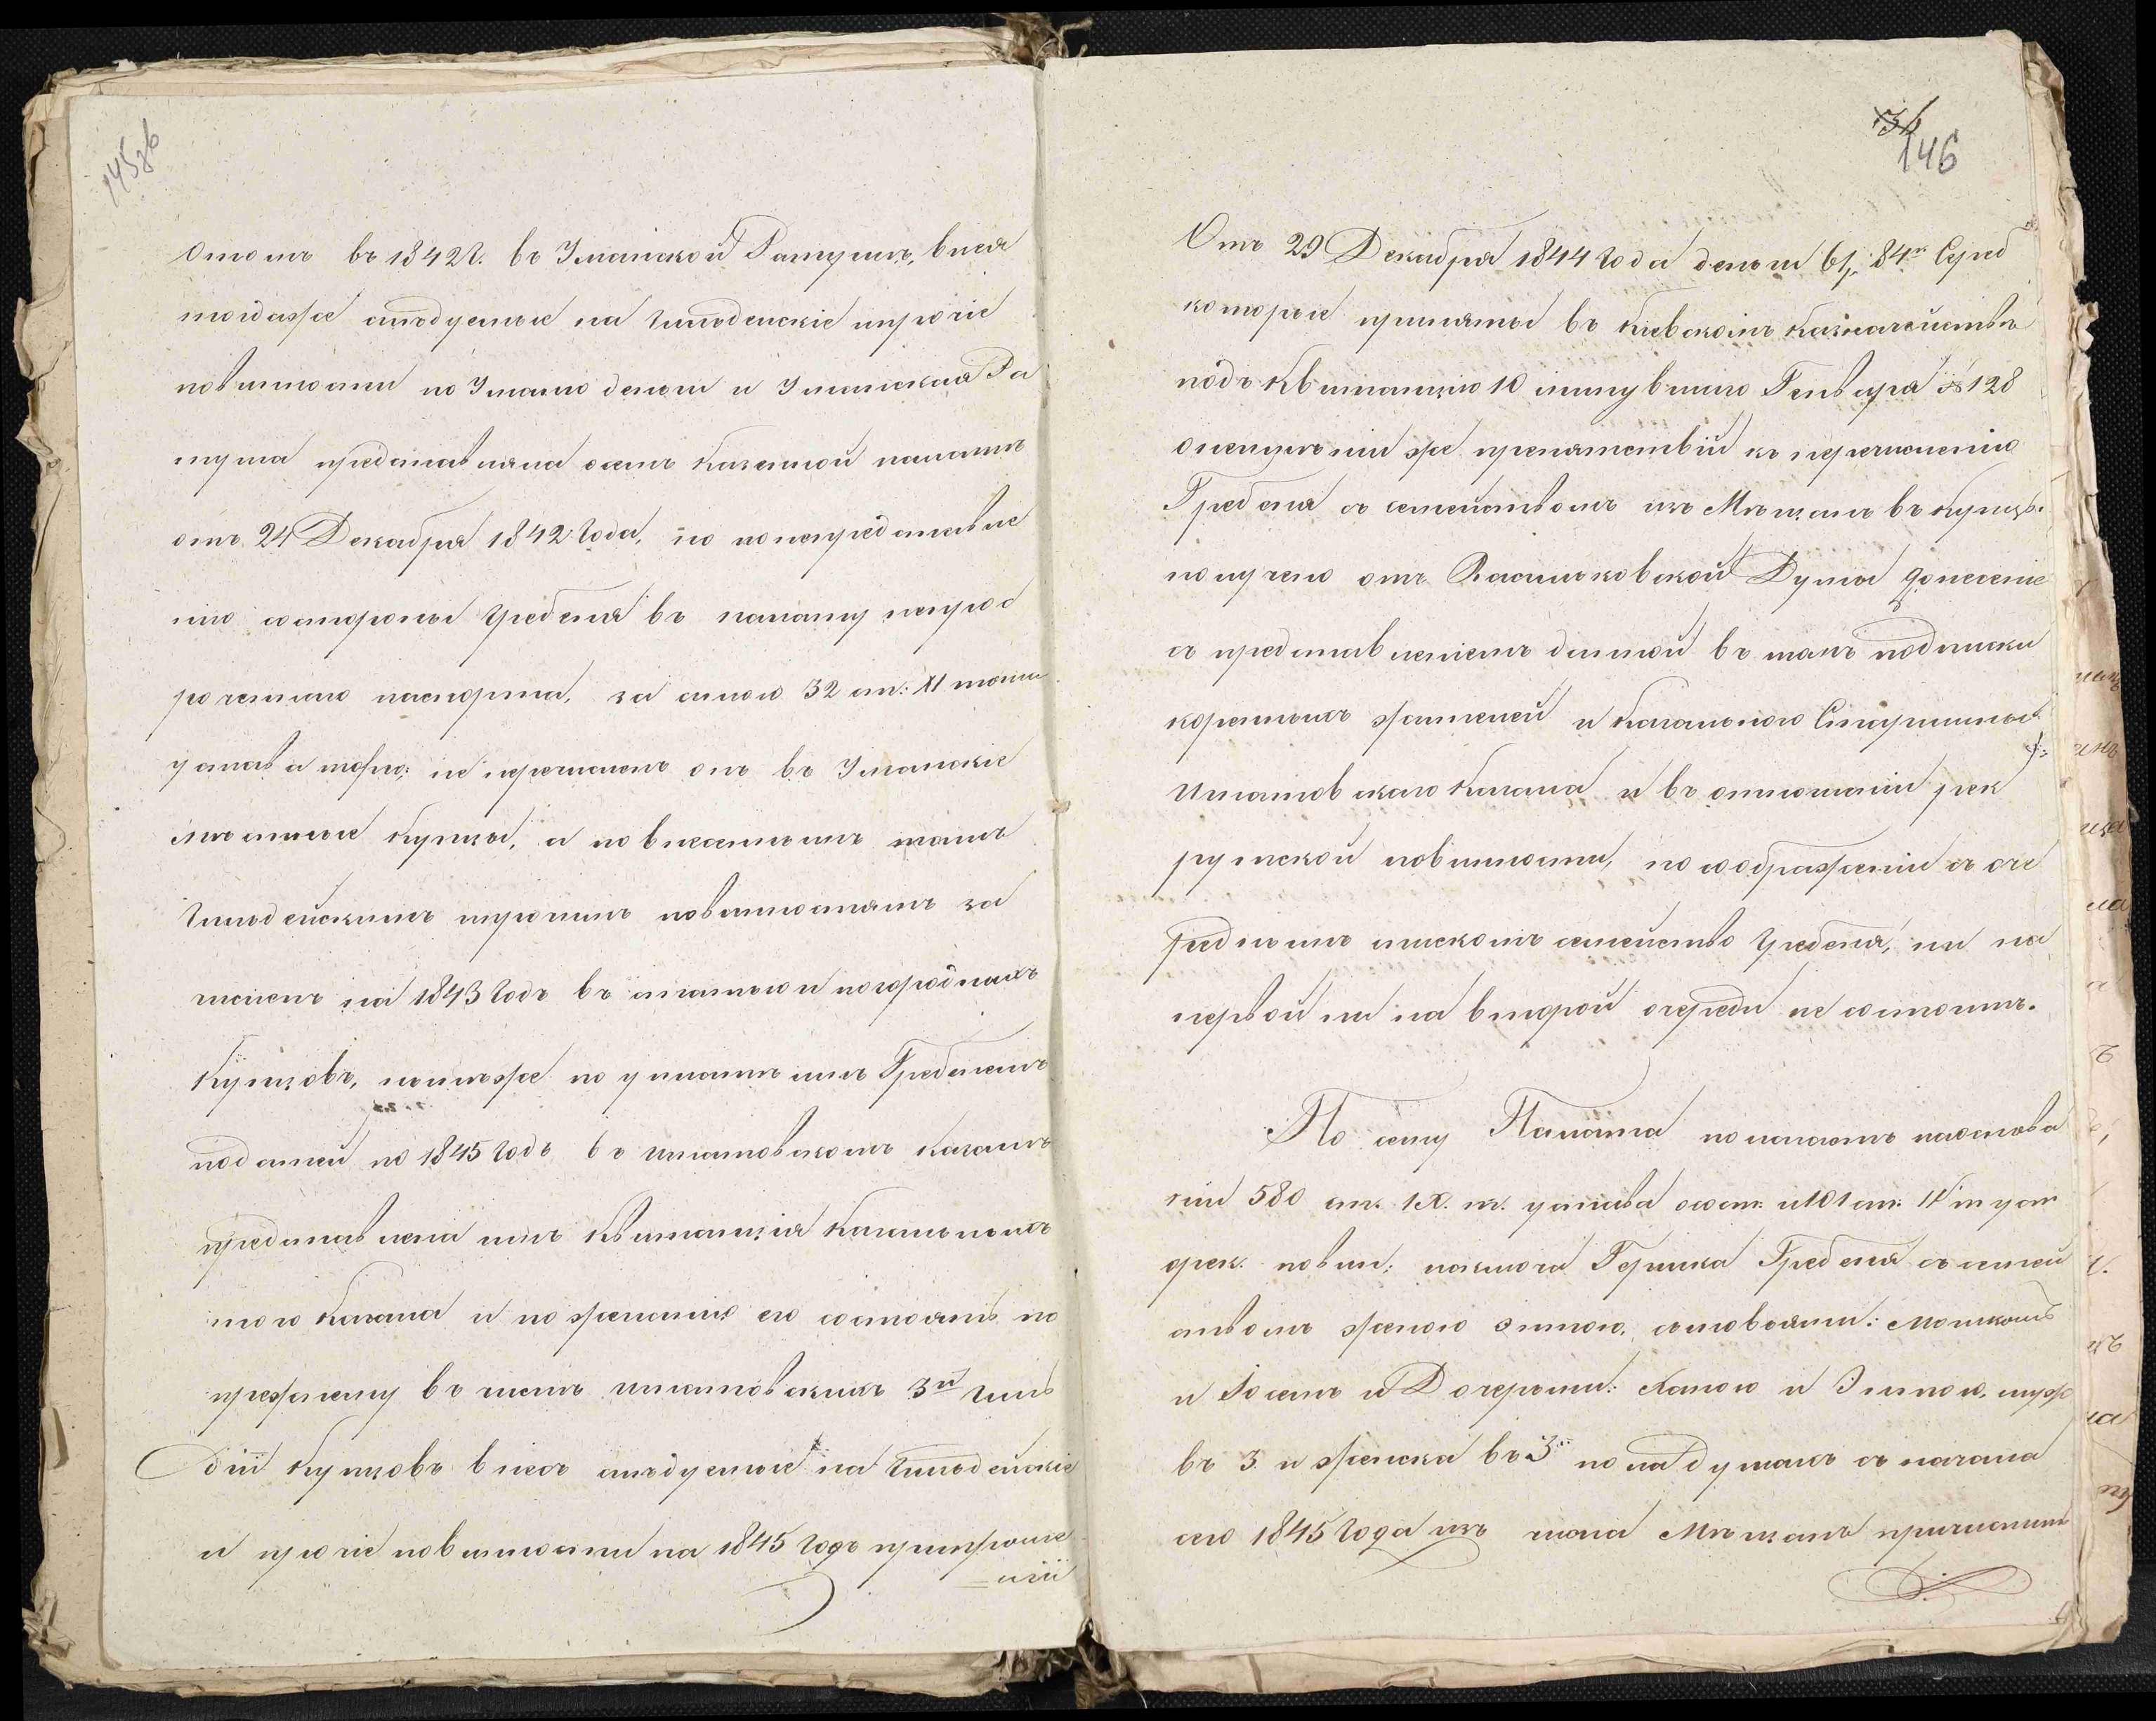 145зв
отомъ въ 1842 г. въ Уманской Ратушѣ, внеся
тогдаже слѣдуемые на гильдейскіе и прочіе
повинности по Уманю деньги и Уманская Ра
туша представляла о семъ Казенной палатѣ
отъ 24 Декабря 1842 года, но по непредставле
нію со стороны Гребеня въ палату непрос
роченнаго паспорта, за силою 32 ст: XI тома
устава торго: не перечисленъ онъ въ Уманскіе
мѣстные Купцы, а по внесеннымъ тамъ
гильдейскимъ и прочимъ повинностямъ за
численъ на 1843 годъ въ статью иногороднихъ
Купцовъ, нынѣже по уплатѣ имъ Гребенемъ
податей по 1845 годъ въ Игнатовскомъ Кагалѣ
представлена имъ Квитанція Кагальнаго
того Кагала и по желанію его состоять по
прежнему въ числѣ Игнатовскихъ 3й гиль
дій Купцовъ внесъ слѣдуемые на гильдейскіе
и прочіе повинности на 1845 годъ при проше
ніи
36
146
Отъ 29 Декабря 1844 года деньги 61 р. 84 к. Сереб
которые приняты въ Кіевскомъ Казначействѣ
подъ Квитанцію 10 минувшаго Генваря № 128
о неимѣніи же препятствій къ перечисленію
Гребеня съ семействомъ изъ Мѣщанъ въ Купцы
получено отъ Васильковской Думы донесеніе
съ представленіемъ данной въ томъ подписки
коренныхъ жителей и Кагальнаго Старшины
Игнатовскаго Кагала и въ отношеніи рек
рутской повинности, по соображеніи съ оче
реднымъ спискомъ семейство Гребеня, ни на
первой ни на второй очереди не состоитъ.
По сему Палата полагаетъ на основа
ніи 580 ст. IX. т. устава о сост: и 101 ст. IV т уст
о рек. повин: показаго Гершка Гребеня съ семей
ствомъ женою Энтою, сыновьями: Мошкомъ
и Іосемъ и Дочерьми: Ханою и Энтою, мужс
въ 3 и женска въ 3х полахъ душахъ съ начала
сего 1845 года изъ числа Мѣщанъ причислить